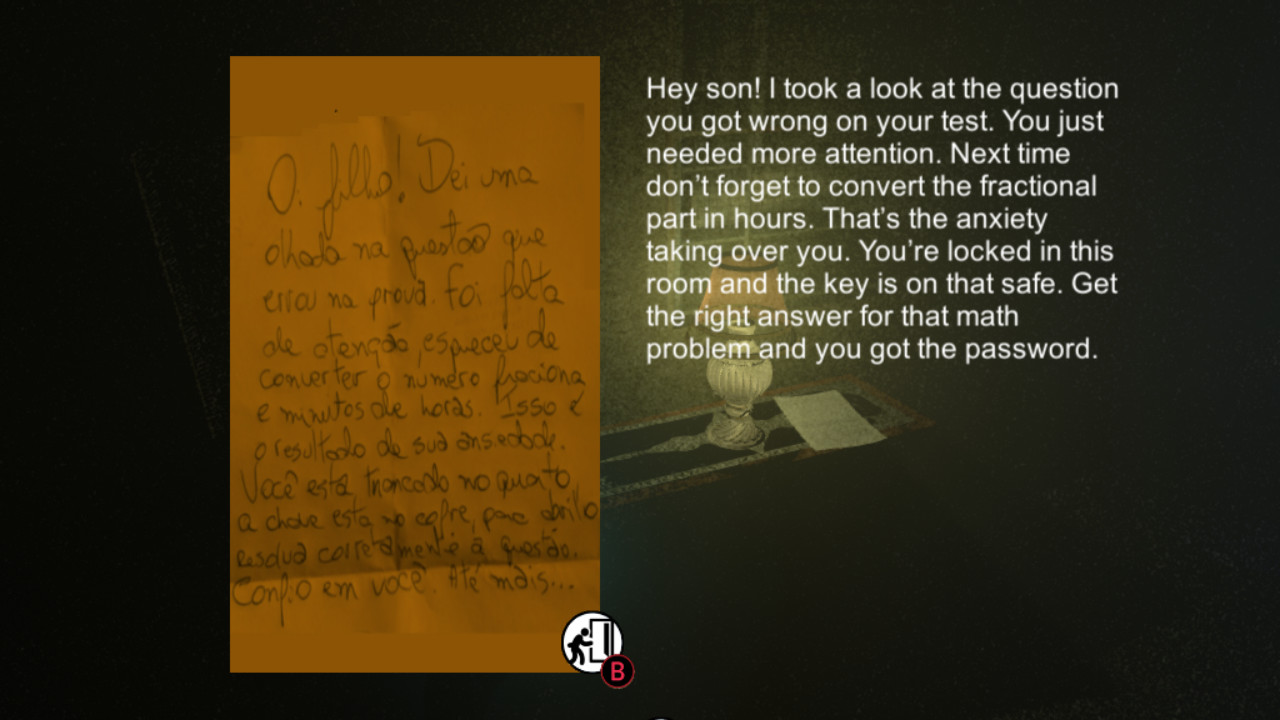 Oi filho! Dei uma
olhada na questão que
errou na prova. Foi falta
de atenção, esqueceu de
converter o numero fraciona
e minutos de horas. Isso é
o resultado de sua ansiedade.
Você está trancado no quarto,
a chave esta no cofre, para abrilo
resolva corretamente a questão.
Confio em você. Até mais...
Hey son! I took a look at the question
you got wrong on your test. You just
needed more attention. Next time
don't forget to convert the fractional
part in hours. That's the anxiety
taking over you. You're locked in this
room and the key is on that safe. Get
the right answer for that math
problem and you got the password.
B